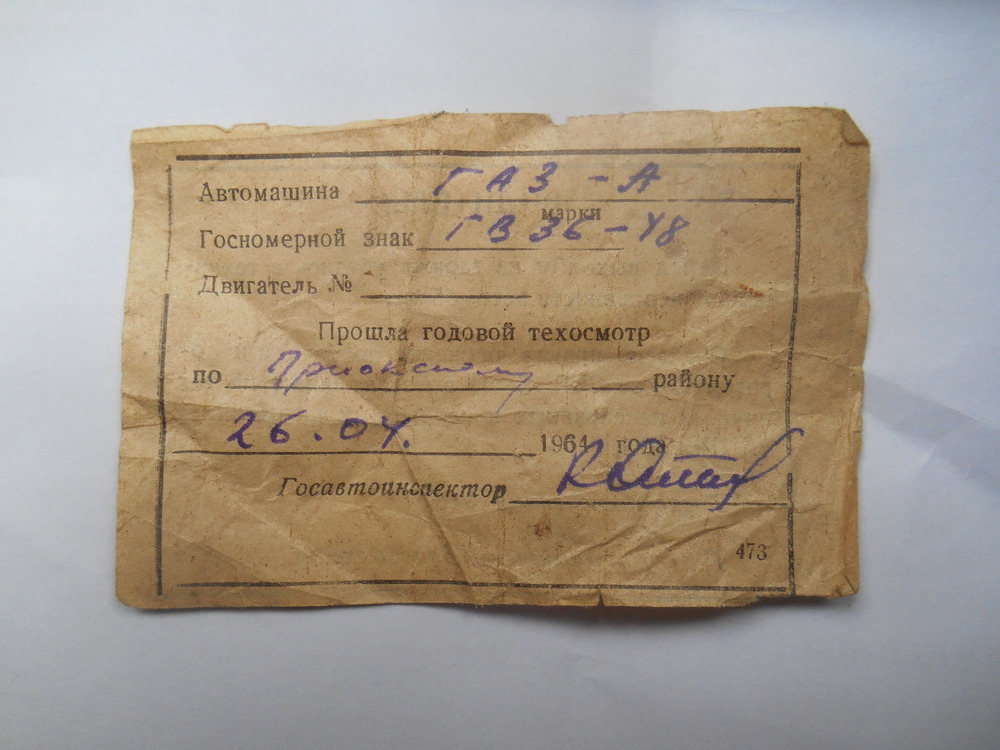 Автомашина ГАЗ-А
марки
Госномерной знак ГВ 36-48
Двигатель №
Прошла годовой техосмотр
по Приокскому району
26.04. 1964 года
Госавтоинспектор
473